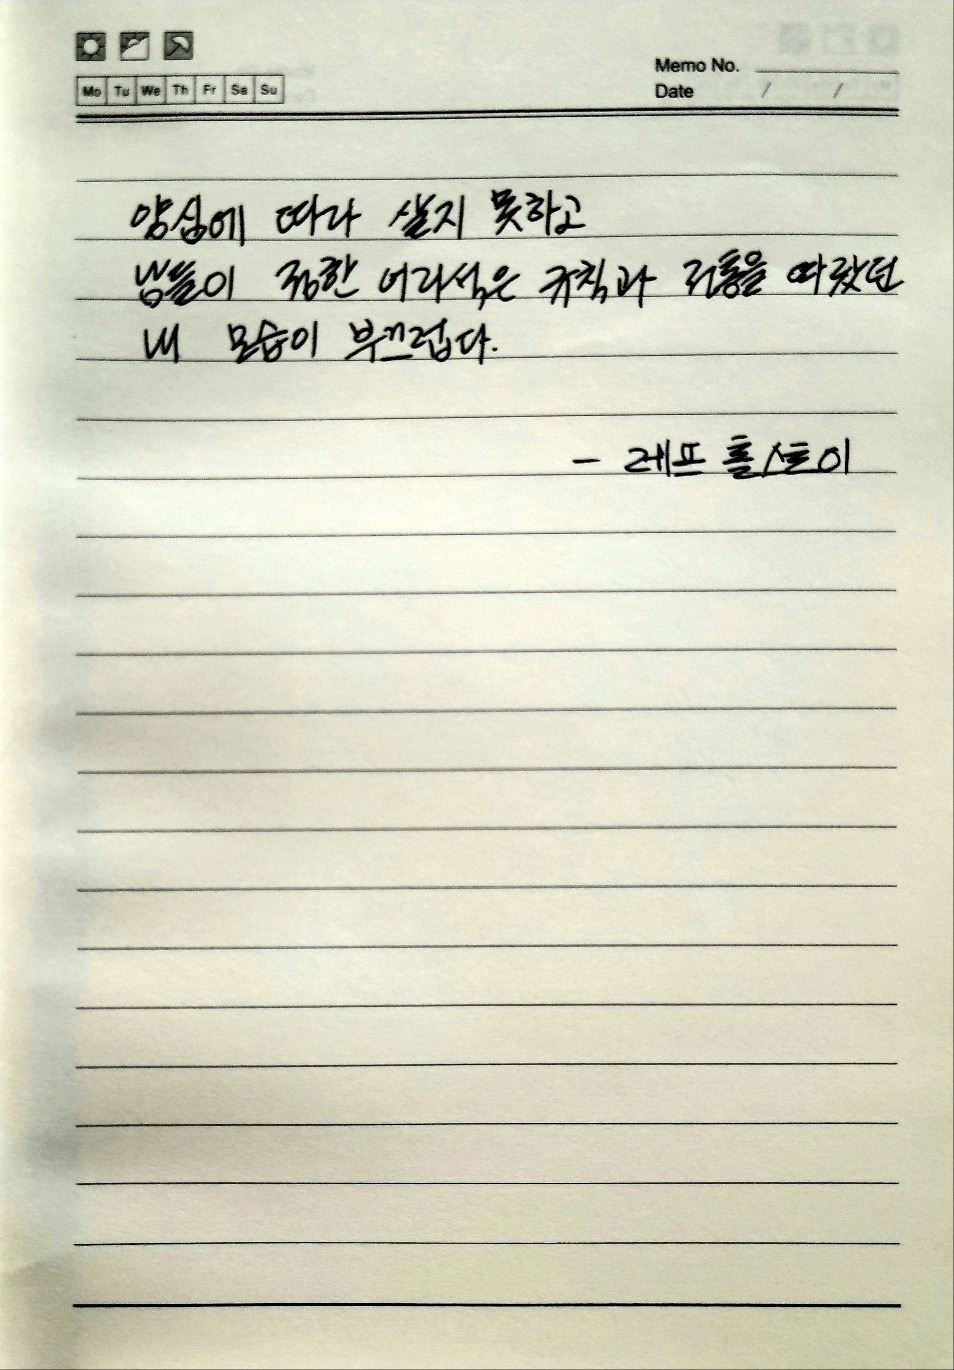 Memo No.
Mo Tu We Th Fr Sa Su
Date / /
양심에 따라 살지 못하고
남들이 정한 어리석은 규칙과 전통을 따랐던
내 모습이 부끄럽다.
- 레프 톨스토이